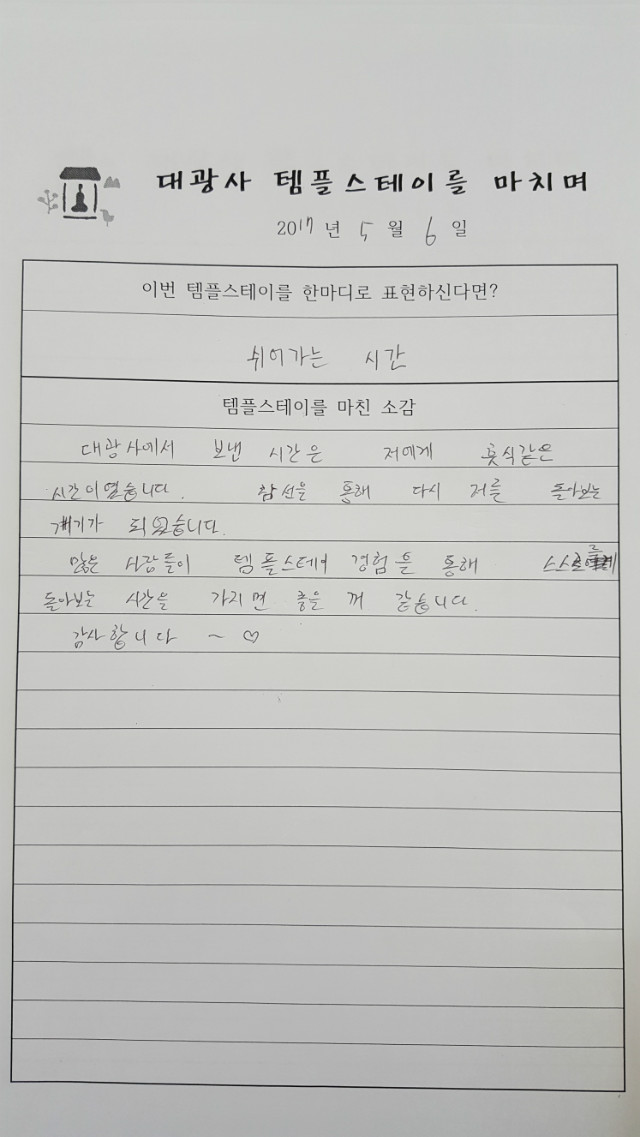 대광사 템플스테이를 마치며
2017 년 5 월 6 일
이번 템플스테이를 한마디로 표현하신다면?
쉬어가는 시간
템플스테이를 마친 소감
대광사에서 보낸 시간은 저에게 휴식같은
시간이였습니다. 참선을 통해 다시 저를 돌아보는
계기가 되었습니다.
많은 사람들이 템플스테이 경험을 통해 스스로를
돌아보는 시간을 가지면 좋을 꺼 같습니다.
감사합니다 ~ ♡